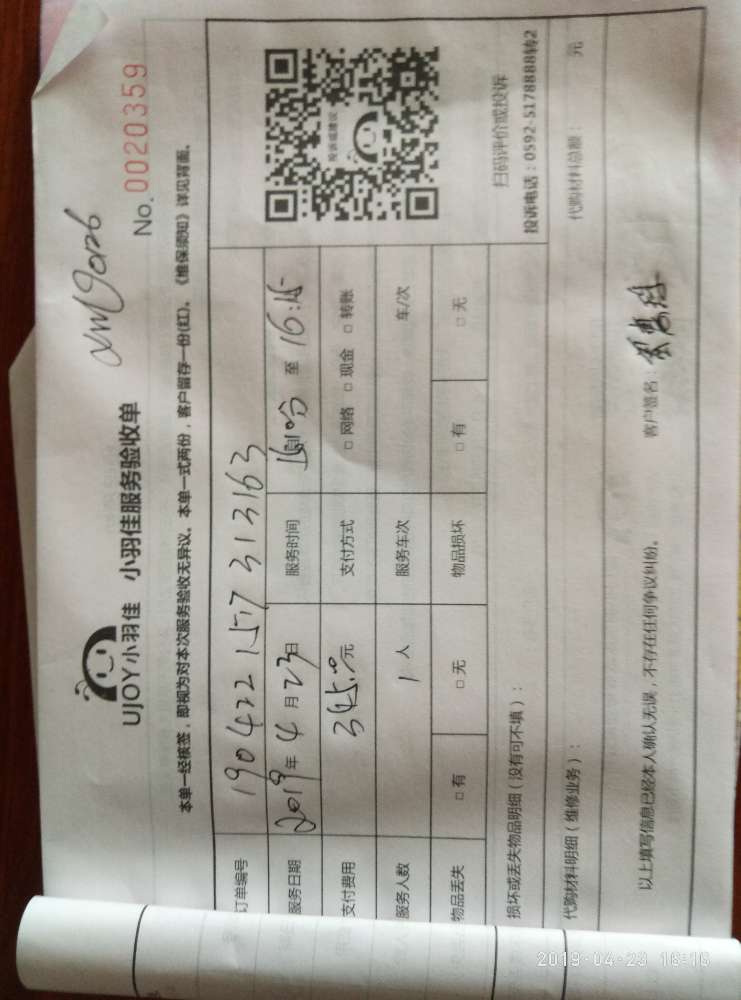 xm9026
No. 0020359
UJOY小羽佳 小羽佳服务验收单
本单一经核签，即视为对本次服务验收无异议。本单一式两份，客户留存一份(红)。《维保须知》详见背面。
订单编号 190422157313163
服务日期 2019年4月23日 服务时间 至16:15
支付费用 345.00元 支付方式 □ 网络 □ 现金 □ 转账
服务人数 1人 服务车次 车/次
物品丢失 □ 有 □ 无 物品损坏 □ 有 □ 无
投诉或建议
扫码评价或投诉
投诉电话：0592-5178888转2
损坏或丢失物品明细（没有可不填）：
代购材料明细（维修业务）： 代购材料总额： 元
以上填写信息已经本人确认无误，不存在任何争议纠纷。 客户签名：
2019-04-23 16:16